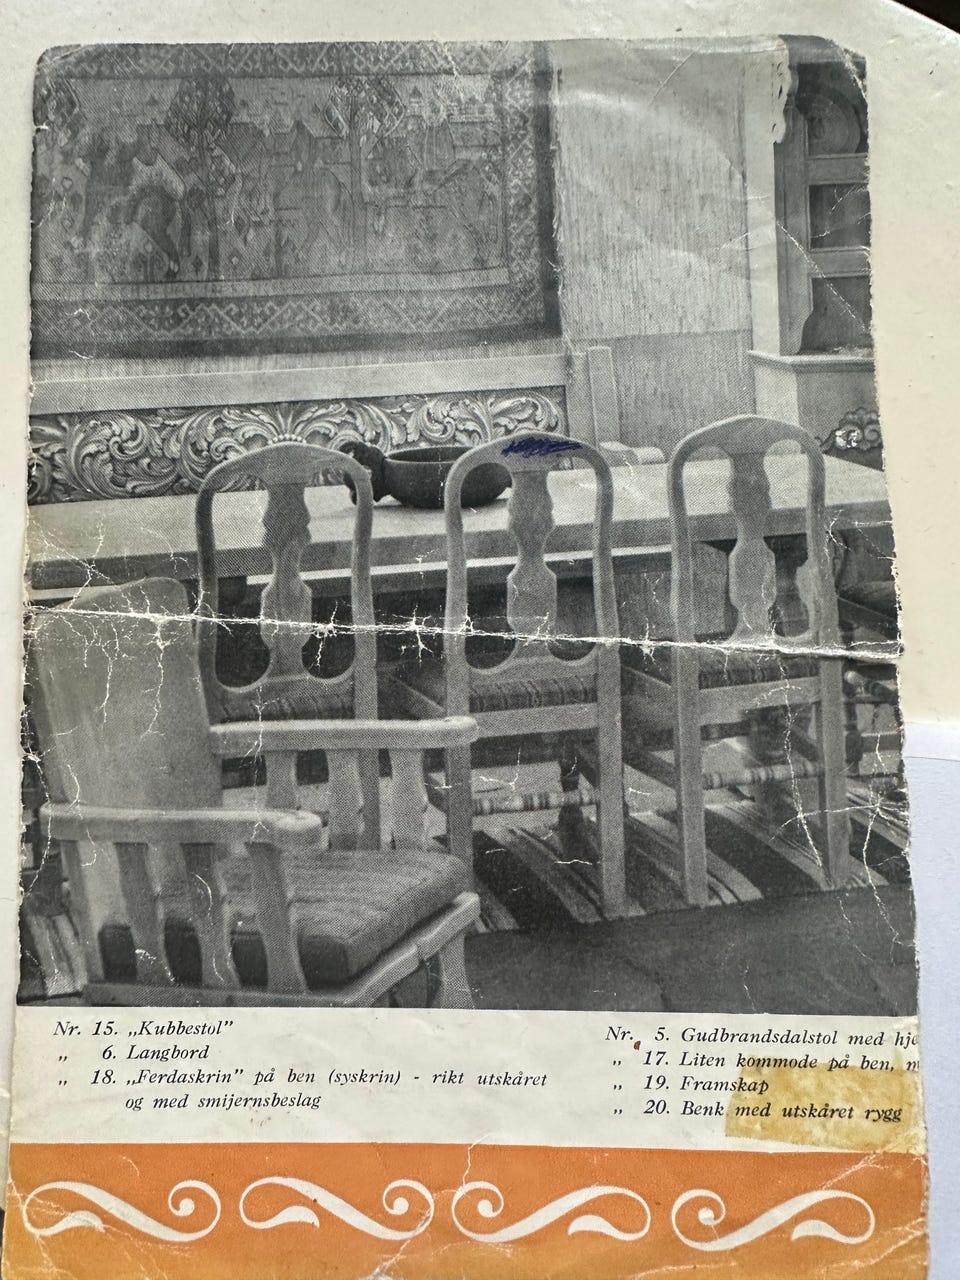 Nr. 15. „Kubbestol”
„ 6. Langbord
„ 18. „Ferdaskrin” på ben (syskrin) - rikt utskåret
og med smijernsbeslag
Nr. 5. Gudbrandsdalstol med
„ 17. Liten kommode på ben,
„ 19. Framskap
„ 20. Benk med utskåret rygg